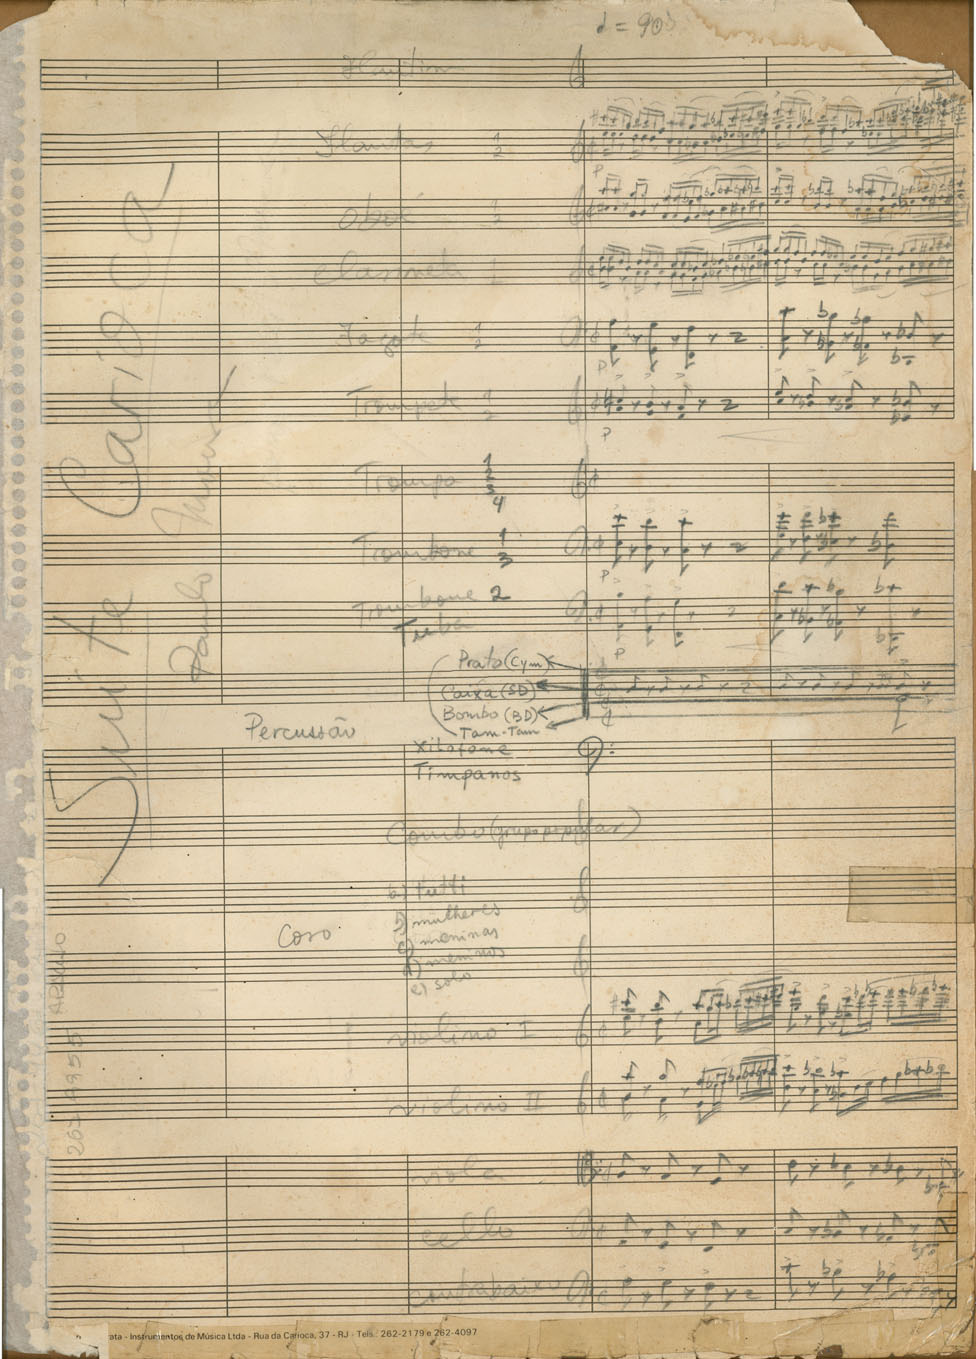 ♩ = 90
Flautim
Flautas 1
2
oboé 1
2
Clarineta 1
Fagote 1
2
Trompete 1
2
Trompa 1
2
3
4
Trombone 1
3
Trombone 2
Tuba
Prato (Cym)
Caixa (SD)
Bombo (BD)
Tam-Tam
Percussão
xilofone
Tímpanos
Combo (grupo popular)
Coro
a) tutti
b) mulheres
c) meninas
d) meninos
e) solo
violino I
violino II
viola
cello
contrabaixo
Suite Carioca
Paulo
rata - Instrumentos de Música Ltda - Rua da Carioca, 37 - RJ - Tels.: 262-2179 e 262-4097